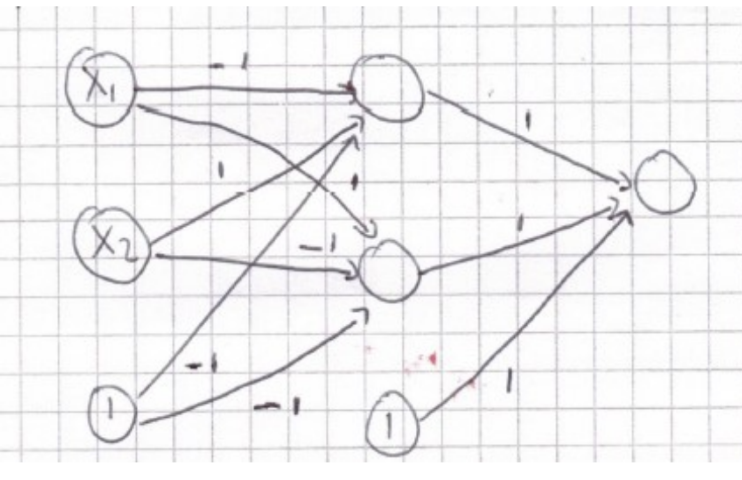 -1
X1
1
1
1
X2
-1
1
-1
-1
1
1
1